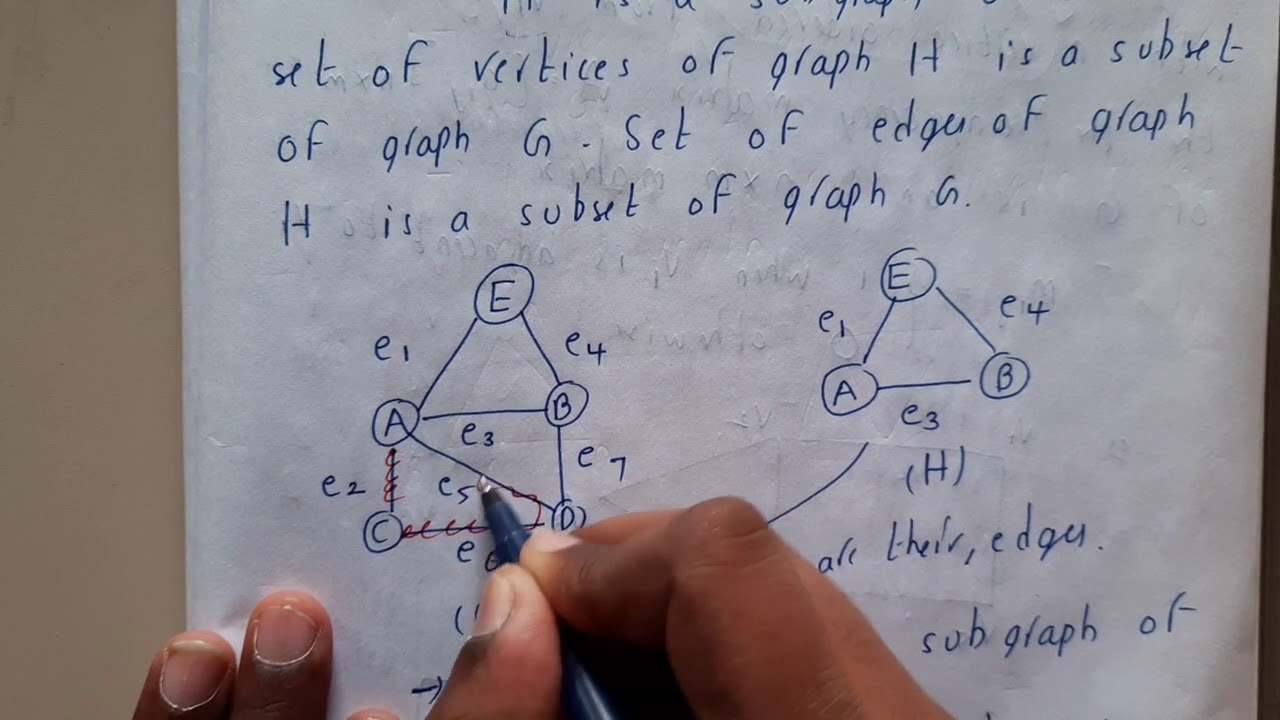 is a subgraph
set of vertices of graph H is a subset
of graph G. Set of edges of graph
H is a subset of graph G.
E
e1
e4
A
B
e3
e7
e2
e5
C
D
e6
E
e1
e4
A
B
e3
(H)
are their, edges.
subgraph of